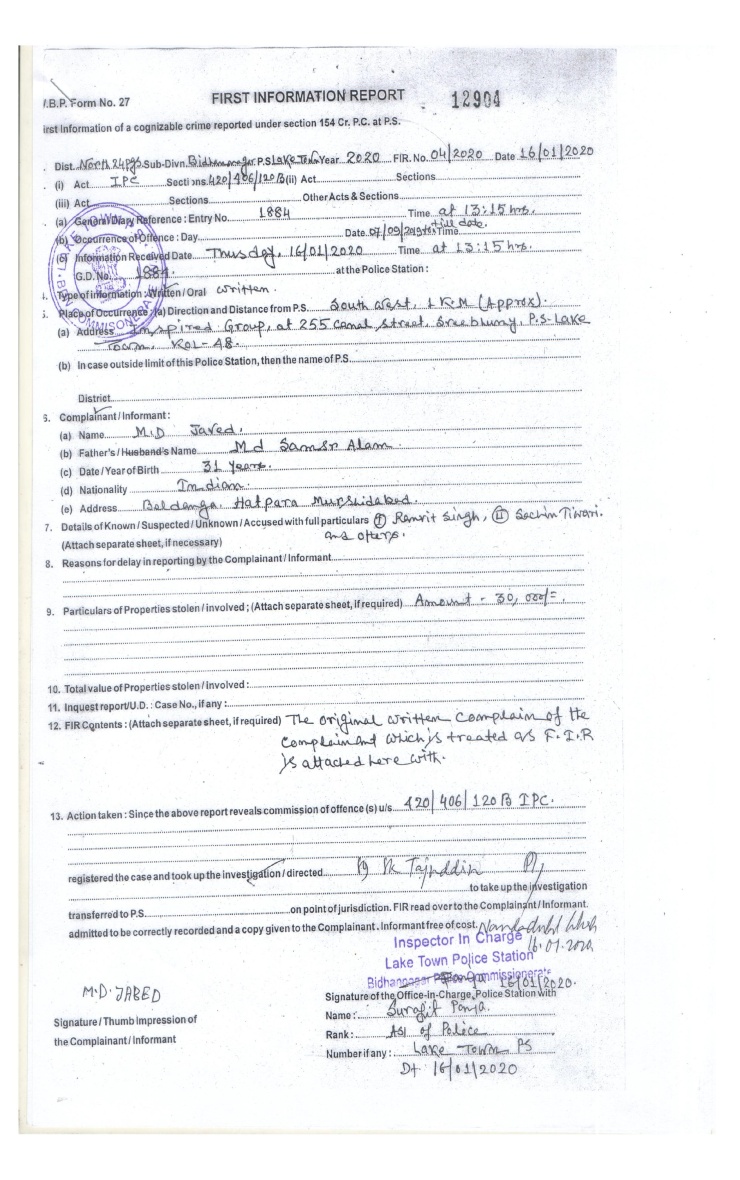 /.B.P. Form No. 27 FIRST INFORMATION REPORT 12904
irst Information of a cognizable crime reported under section 154 Cr. P.C. at P.S.
. Dist. North 24 Pgs Sub-Divn. Bidhannagar P.S Lake Town Year 2020 FIR. No. 04/2020 Date 16/01/2020
. (i) Act IPC Sections. 420/406/120B (ii) Act Sections
(iii) Act Sections Other Acts & Sections
. (a) General Diary Reference : Entry No. 1884 Time at 13:15 hrs.
(b) Occurrence of Offence : Day Date 07/09/2019 till date. Time
(c) Information Received Date Thusday, 16/01/2020 Time at 13:15 hrs.
G.D. No. 1884. at the Police Station :
. Type of information : Written / Oral written.
. Place of Occurrence : (a) Direction and Distance from P.S. South West, 1 K.M (Approx).
(a) Address Inspired Group, at 255 canal street, Sreebhumy, P.S-Lake
Town, KOL-48.
(b) In case outside limit of this Police Station, then the name of P.S.
District
6. Complainant / Informant :
(a) Name M.D Javed.
(b) Father's / Husband's Name Md Samsr Alam.
(c) Date / Year of Birth 31 years.
(d) Nationality Indian.
(e) Address Beldanga. Hatpara Murshidabad.
7. Details of Known / Suspected / Unknown / Accused with full particulars (I) Ramrit Singh, (II) Sachin Tiwari.
(Attach separate sheet, if necessary) and others.
8. Reasons for delay in reporting by the Complainant / Informant
9. Particulars of Properties stolen / involved ; (Attach separate sheet, if required) Amount - 30,000/=.
10. Total value of Properties stolen / involved :
11. Inquest report/U.D. : Case No., if any :
12. FIR Contents : (Attach separate sheet, if required) The original written complain of the
complainant which is treated as F.I.R
is attached here with.
13. Action taken : Since the above report reveals commission of offence (s) u/s 420/406/120B IPC.
registered the case and took up the investigation / directed SK Tajuddin
to take up the investigation
transferred to P.S. on point of jurisdiction. FIR read over to the Complainant / Informant.
admitted to be correctly recorded and a copy given to the Complainant. Informant free of cost.
Inspector In Charge 16.01.2020
Lake Town Police Station
Bidhannagar Police Commissionerate 16/01/2020.
M.D. JABED
Signature of the Office-In-Charge, Police Station with
Name : Surajit Ponja.
Signature / Thumb Impression of
Rank : ASI of Police
the Complainant / Informant
Number if any : Lake Town PS
Dt 16/01/2020